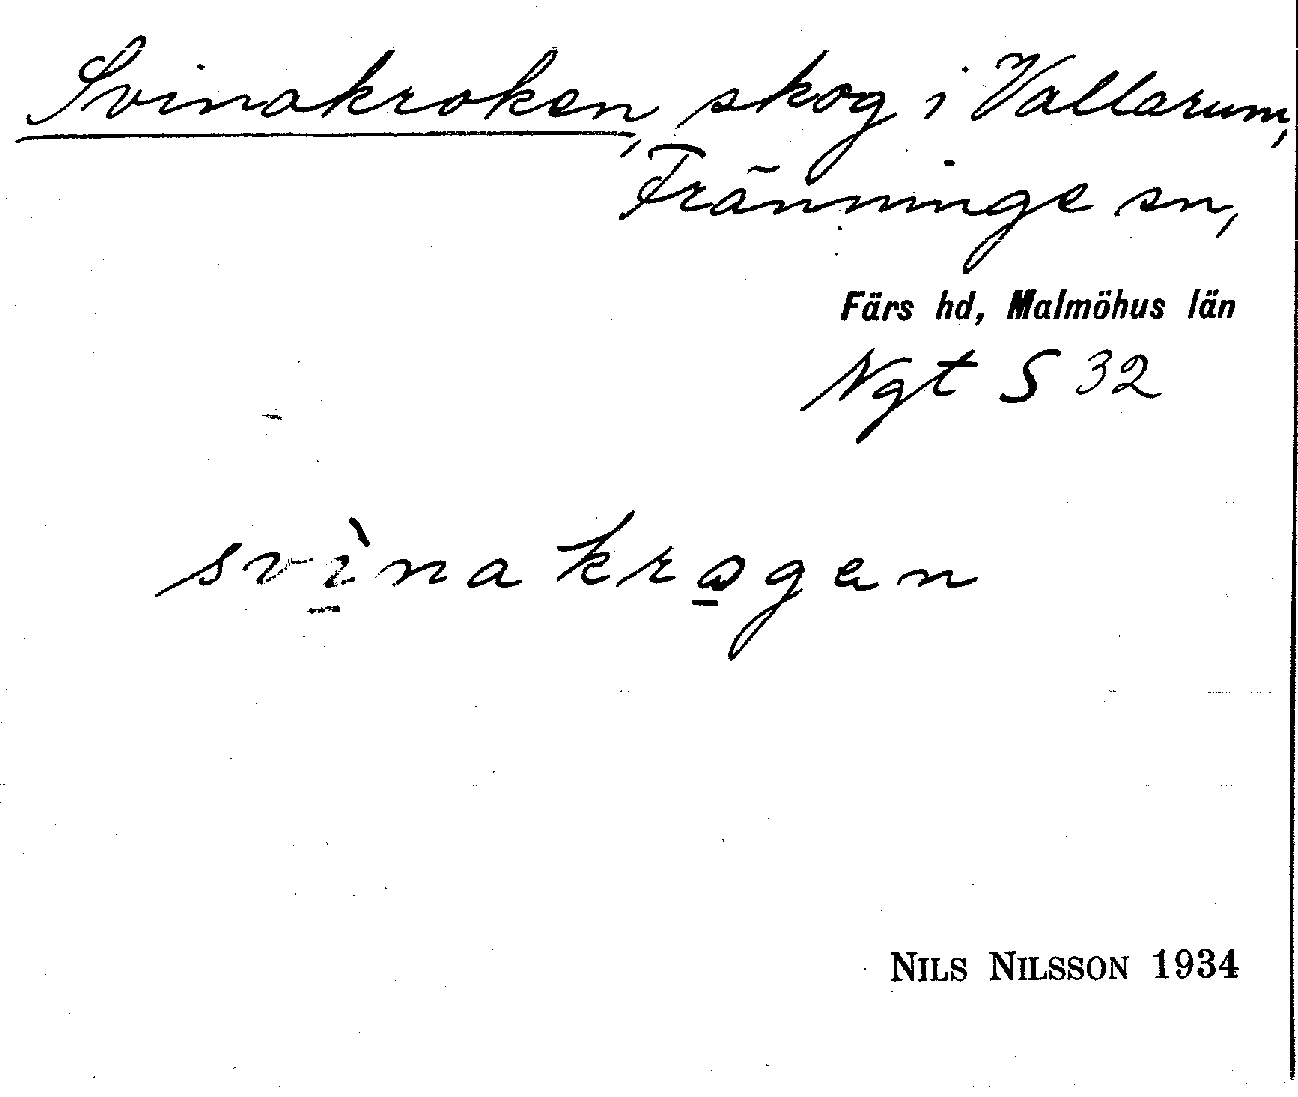 Svinakroken, skog i Vallarum,
Fränninge sn,
Färs hd, Malmöhus län
Ngt S 32
svì̲nakro̲gen
NILS NILSSON 1934